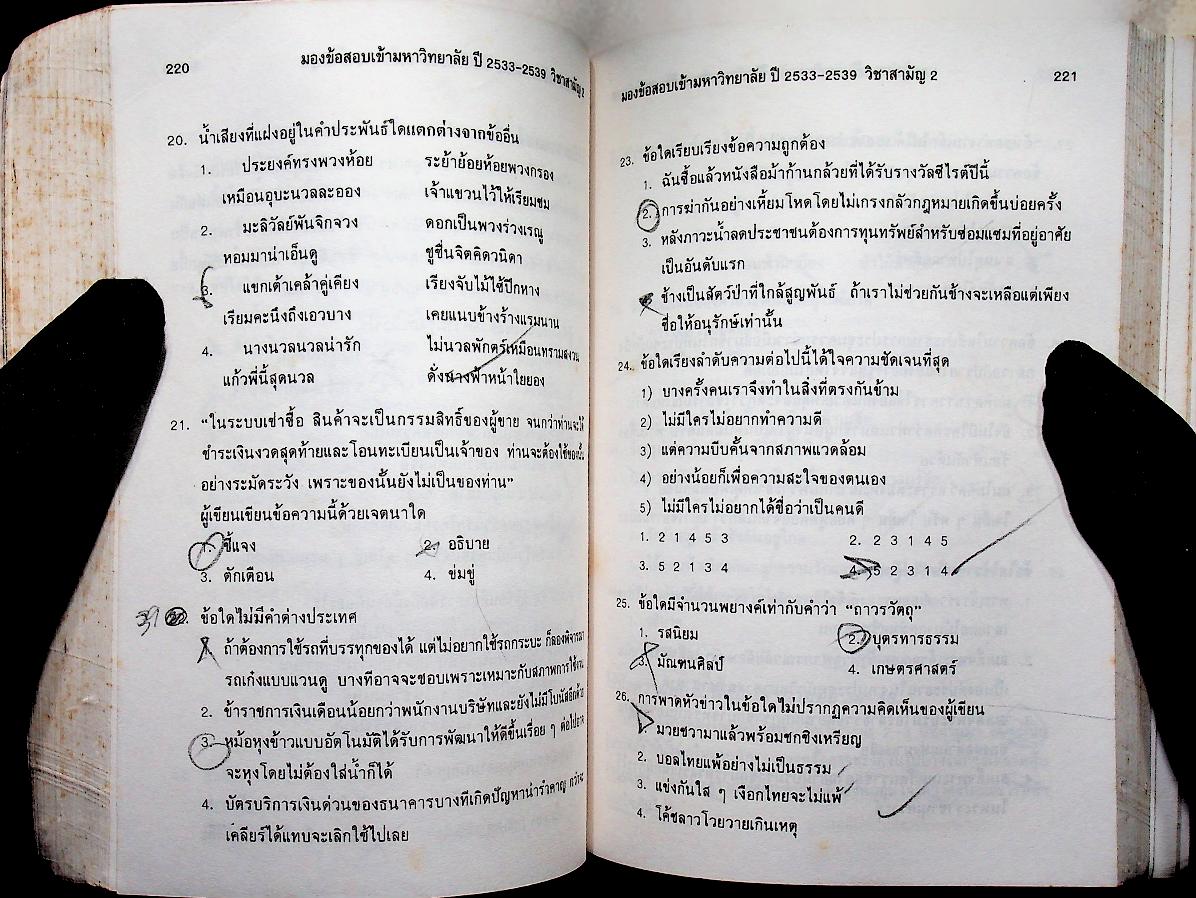 220
มองข้อสอบเข้ามหาวิทยาลัย ปี 2533-2539 วิชาสามัญ 2
20. น้ำเสียงที่แฝงอยู่ในคำประพันธ์ใดแตกต่างจากข้ออื่น
1. ประยงค์ทรงพวงห้อย ระย้าย้อยห้อยพวงกรอง
เหมือนอุบะนวลละออง เจ้าแขวนไว้ให้เรียมชม
2. มะลิวัลย์พันจิกจวง ดอกเป็นพวงร่วงเรณู
หอมมาน่าเอ็นดู ชูชื่นจิตคิดวนิดา
3. แขกเต้าเคล้าคู่เคียง เรียงจับไม้ไซ้ปีกหาง
เรียมคะนึงถึงเอวบาง เคยแนบข้างร้างแรมนาน
4. นางนวลนวลน่ารัก ไม่นวลพักตร์เหมือนทรามสงวน
แก้วพี่นี้สุดนวล ดั่งนางฟ้าหน้าใยยอง
21. "ในระบบเช่าซื้อ สินค้าจะเป็นกรรมสิทธิ์ของผู้ขาย จนกว่าท่านจะได้
ชำระเงินงวดสุดท้ายและโอนทะเบียนเป็นเจ้าของ ท่านจะต้องใช้ของนั้น
อย่างระมัดระวัง เพราะของนั้นยังไม่เป็นของท่าน"
ผู้เขียนเขียนข้อความนี้ด้วยเจตนาใด
1. ชี้แจง 2. อธิบาย
3. ตักเตือน 4. ข่มขู่
ข้อใดไม่มีคำต่างประเทศ
ถ้าต้องการใช้รถที่บรรทุกของได้ แต่ไม่อยากใช้รถกระบะ ก็ลองพิจารณา
รถเก๋งแบบแวนดู บางทีอาจจะชอบเพราะเหมาะกับสภาพการใช้งาน
2. ข้าราชการเงินเดือนน้อยกว่าพนักงานบริษัทและยังไม่มีโบนัสอีกด้วย
3. หม้อหุงข้าวแบบอัตโนมัติได้รับการพัฒนาให้ดีขึ้นเรื่อย ๆ ต่อไปอาจ
จะหุงโดยไม่ต้องใส่น้ำก็ได้
4. บัตรบริการเงินด่วนของธนาคารบางทีเกิดปัญหาน่ารำคาญ กว่าจะ
เคลียร์ได้แทบจะเลิกใช้ไปเลย
มองข้อสอบเข้ามหาวิทยาลัย ปี 2533-2539 วิชาสามัญ 2
221
23. ข้อใดเรียบเรียงข้อความถูกต้อง
1. ฉันซื้อแล้วหนังสือม้าก้านกล้วยที่ได้รับรางวัลซีไรต์ปีนี้
2. การฆ่ากันอย่างเหี้ยมโหดโดยไม่เกรงกลัวกฎหมายเกิดขึ้นบ่อยครั้ง
3. หลังภาวะน้ำลดประชาชนต้องการทุนทรัพย์สำหรับซ่อมแซมที่อยู่อาศัย
เป็นอันดับแรก
ช้างเป็นสัตว์ป่าที่ใกล้สูญพันธ์ ถ้าเราไม่ช่วยกันช้างจะเหลือแต่เพียง
ชื่อให้อนุรักษ์เท่านั้น
24. ข้อใดเรียงลำดับความต่อไปนี้ได้ใจความชัดเจนที่สุด
1) บางครั้งคนเราจึงทำในสิ่งที่ตรงกันข้าม
2) ไม่มีใครไม่อยากทำความดี
3) แต่ความบีบคั้นจากสภาพแวดล้อม
4) อย่างน้อยก็เพื่อความสะใจของตนเอง
5) ไม่มีใครไม่อยากได้ชื่อว่าเป็นคนดี
1. 2 1 4 5 3 2. 2 3 1 4 5
3. 5 2 1 3 4 4. 5 2 3 1 4
25. ข้อใดมีจำนวนพยางค์เท่ากับคำว่า "ถาวรวัตถุ"
1. รสนิยม 2. บุตรทารธรรม
3. มัณฑนศิลป์ 4. เกษตรศาสตร์
26. การพาดหัวข่าวในข้อใดไม่ปรากฏความคิดเห็นของผู้เขียน
มวยชวามาแล้วพร้อมชกชิงเหรียญ
2. บอลไทยแพ้อย่างไม่เป็นธรรม
3. แข่งกันใส ๆ เงือกไทยจะไม่แพ้
4. โค้ชลาวโวยวายเกินเหตุ